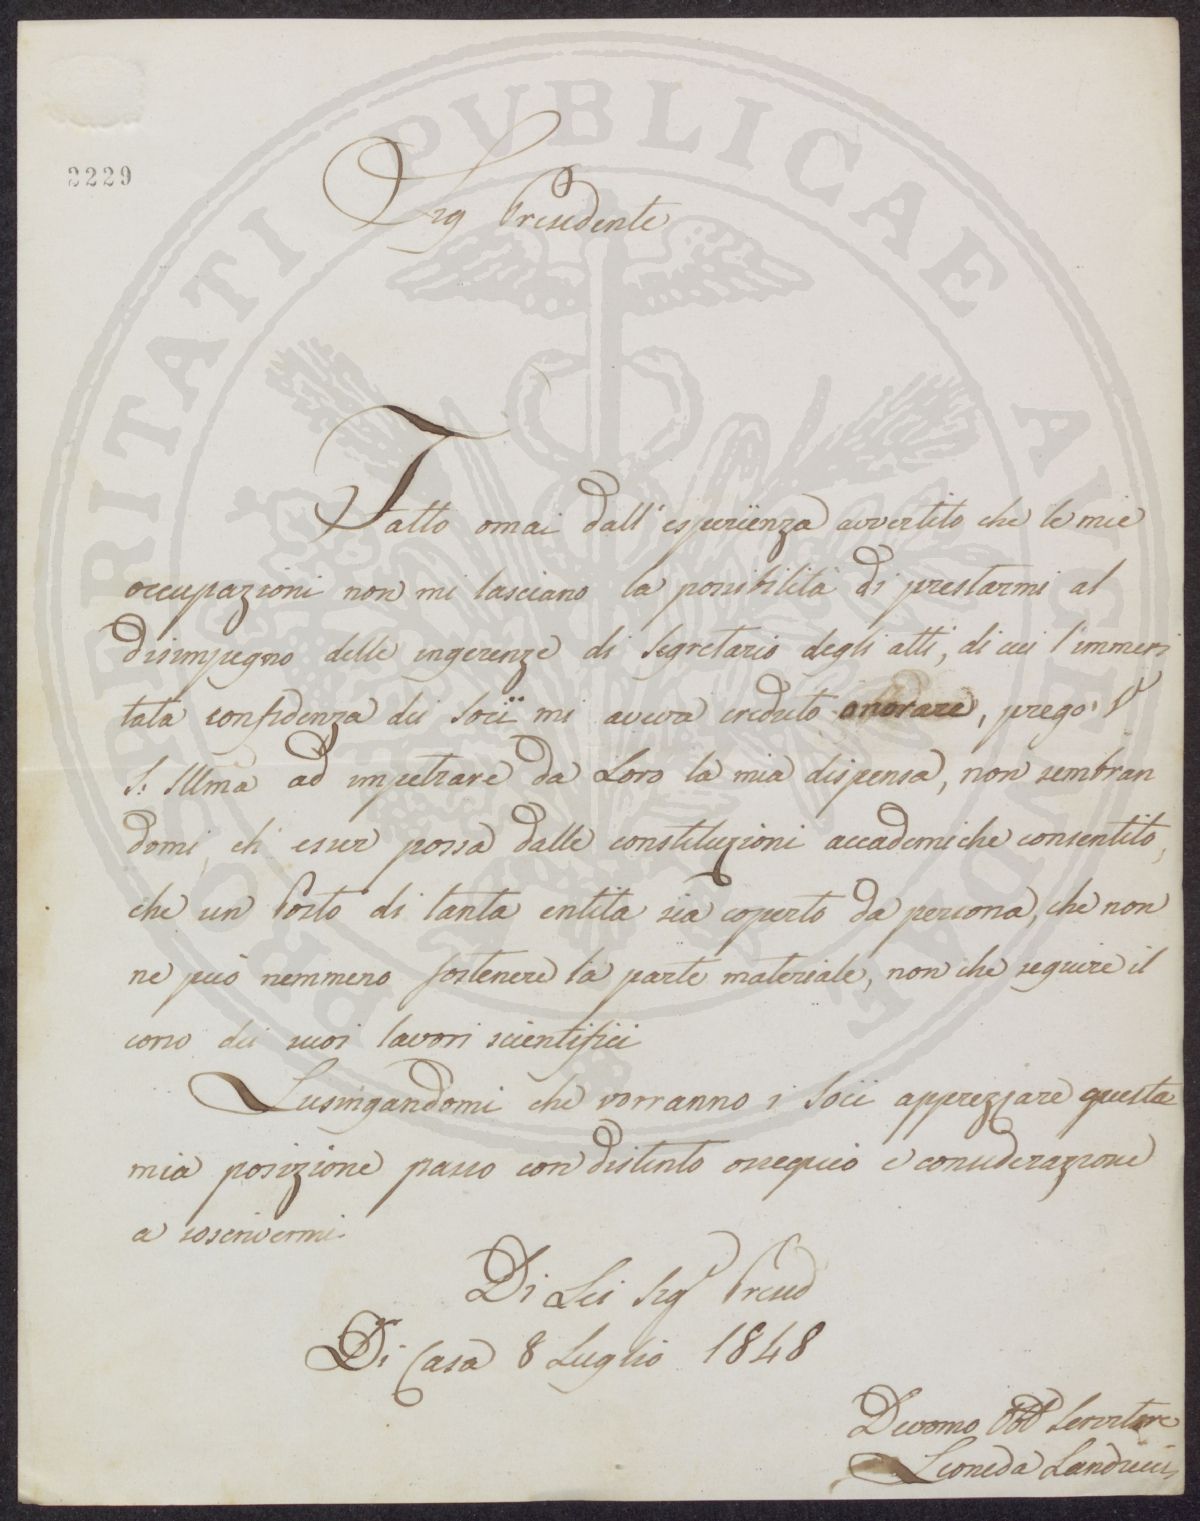 PROSPERITATI PUBLICAE AUGENDAE
2229
Sig Presidente
Fatto omai dall'esperïenza avvertito che le mie
occupazioni non mi lasciano la possibilità di prestarmi al
disimpegno delle ingerenze di Segretario degli atti, di cui l'immeri
tata confidenza dei Socïi mi aveva creduto onorare, prego V
S. Illma ad impetrare da Loro la mia dispensa, non sembran
domi, ch esser possa dalle constituzioni accademiche consentito,
che un Posto di tanta entità sia coperto da persona, che non
ne può nemmeno sostenere la parte materiale, non che seguire il
corso dei suoi lavori scientifici
Lusingandomi che vorranno i Socii apprezzare questa
mia posizione passo con distinto ossequio e considerazione
a soscrivermi
Di Lei Sigr Presid
Di Casa 8 Luglio 1848
Devomo Obb Servitore
Leonida Landucci